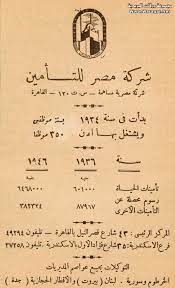 شركة مصر للتأمين
شركة مصرية مساهمة - س.ت ١٣٠ - القاهرة
بدأت فى سنة ١٩٣٤ بستة موظفين
ويشتغل بها الآن ٣٥٠ موظفا
سنة ١٩٣٦ ١٩٤٦
تأمينات الحياة ٦٠١٠٠٠ ٦٤٦٨٠٠٠
رسوم محصلة عن
التأمينات الأخرى ٨٧٩٦٧ ٣٨٢٣٢٤
المركز الرئيسى: ٤٣ شارع قصر النيل بالقاهرة - تليفون ٤٩٢٩٤
فرع الاسكندرية: ٣٥ شارع فؤاد الأول الاسكندرية تليفون ٢٧٢٥٨
التوكيلات بجميع عواصم المديريات
الخرطوم وسوريا. لبنان (بيروت) والأقطار الحجازية (جدة)